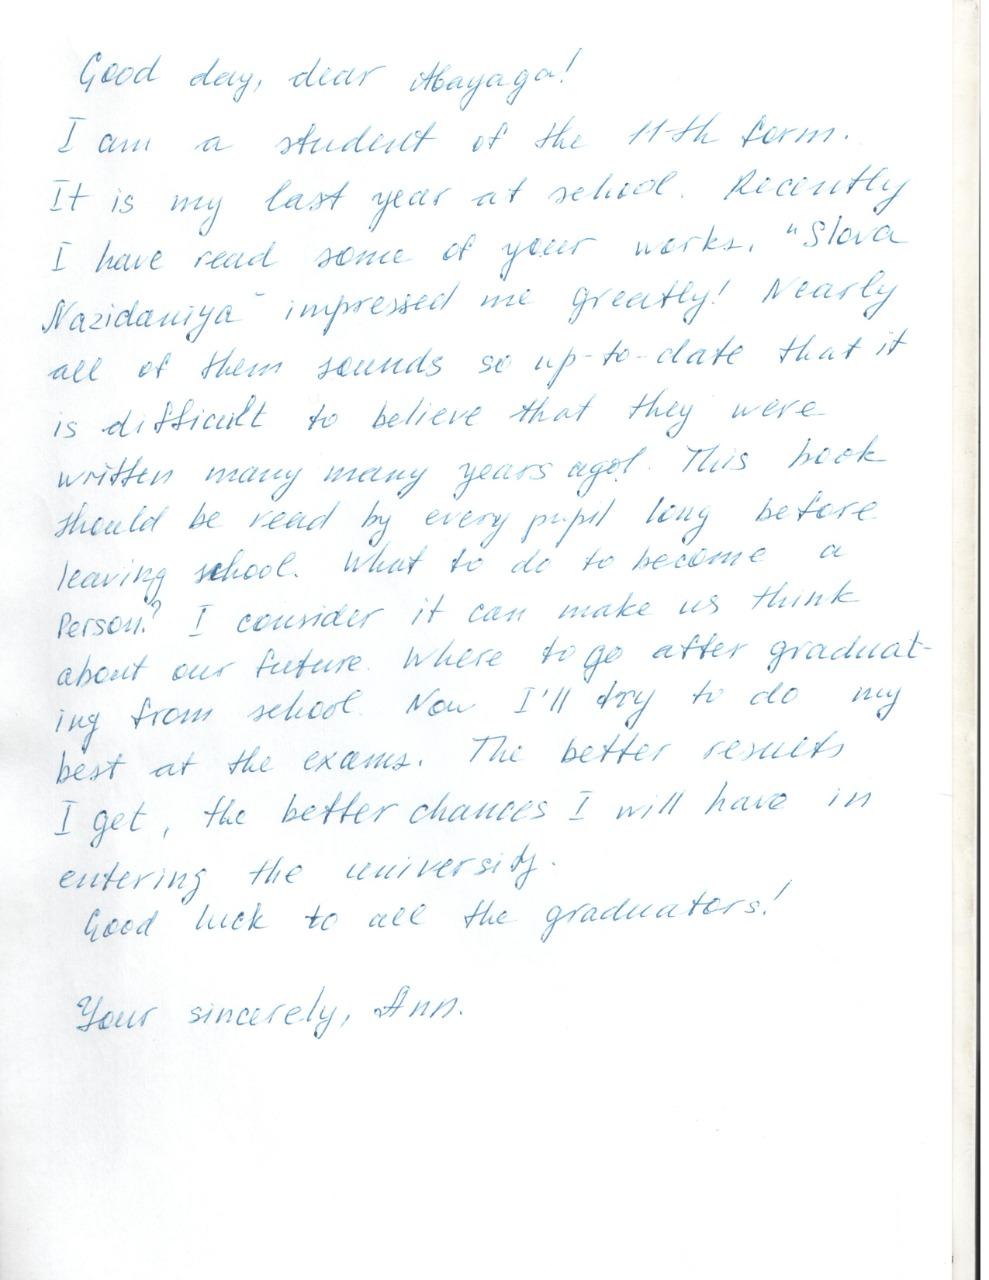 Good day, dear Abayaga!
I am a student of the 11-th form.
It is my last year at school. Recently
I have read some of your works. "Slova
Nazidaniya" impressed me greatly! Nearly
all of them sounds so up-to-date that it
is difficult to believe that they were
written many many years ago!. This book
should be read by every pupil long before
leaving school. What to do to become a
Person? I consider it can make us think
about our future. Where to go after graduat-
ing from school. Now I'll try to do my
best at the exams. The better results
I get, the better chances I will have in
entering the university.
Good luck to all the graduators!
Your sincerely, Ann.